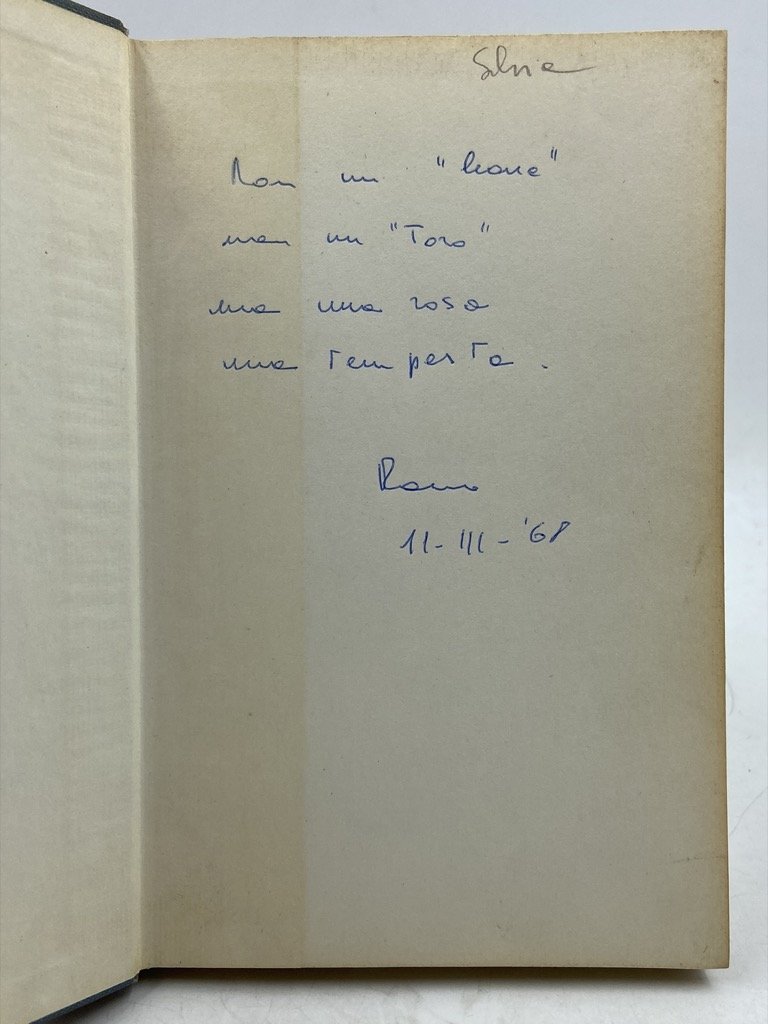 Silvia
Non un "leone"
non un "Toro"
ma una rosa
una tempesta.
Roma
11-III-'68